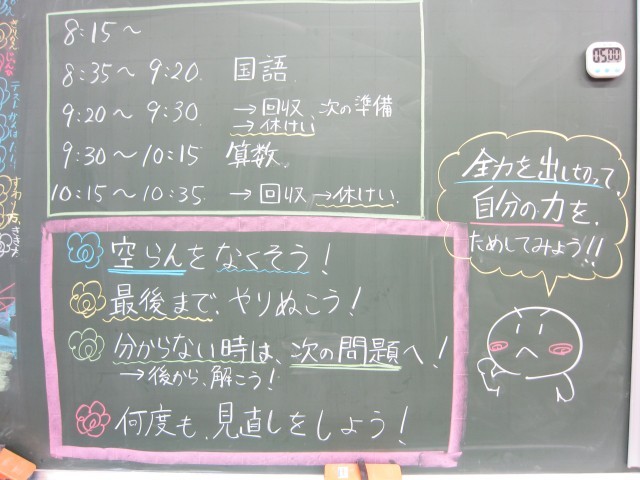 8:15～
8:35～9:20. 国語.
9:20～9:30. →回収、次の準備
→休けい
9:30～10:15 算数.
10:15～10:35. →回収 →休けい.
空らんをなくそう!
最後まで、やりぬこう!
分からない時は、次の問題へ!
→後から、解こう!
何度も、見直しをしよう!
全力を出し切って、
自分の力を、
ためしてみよう!!